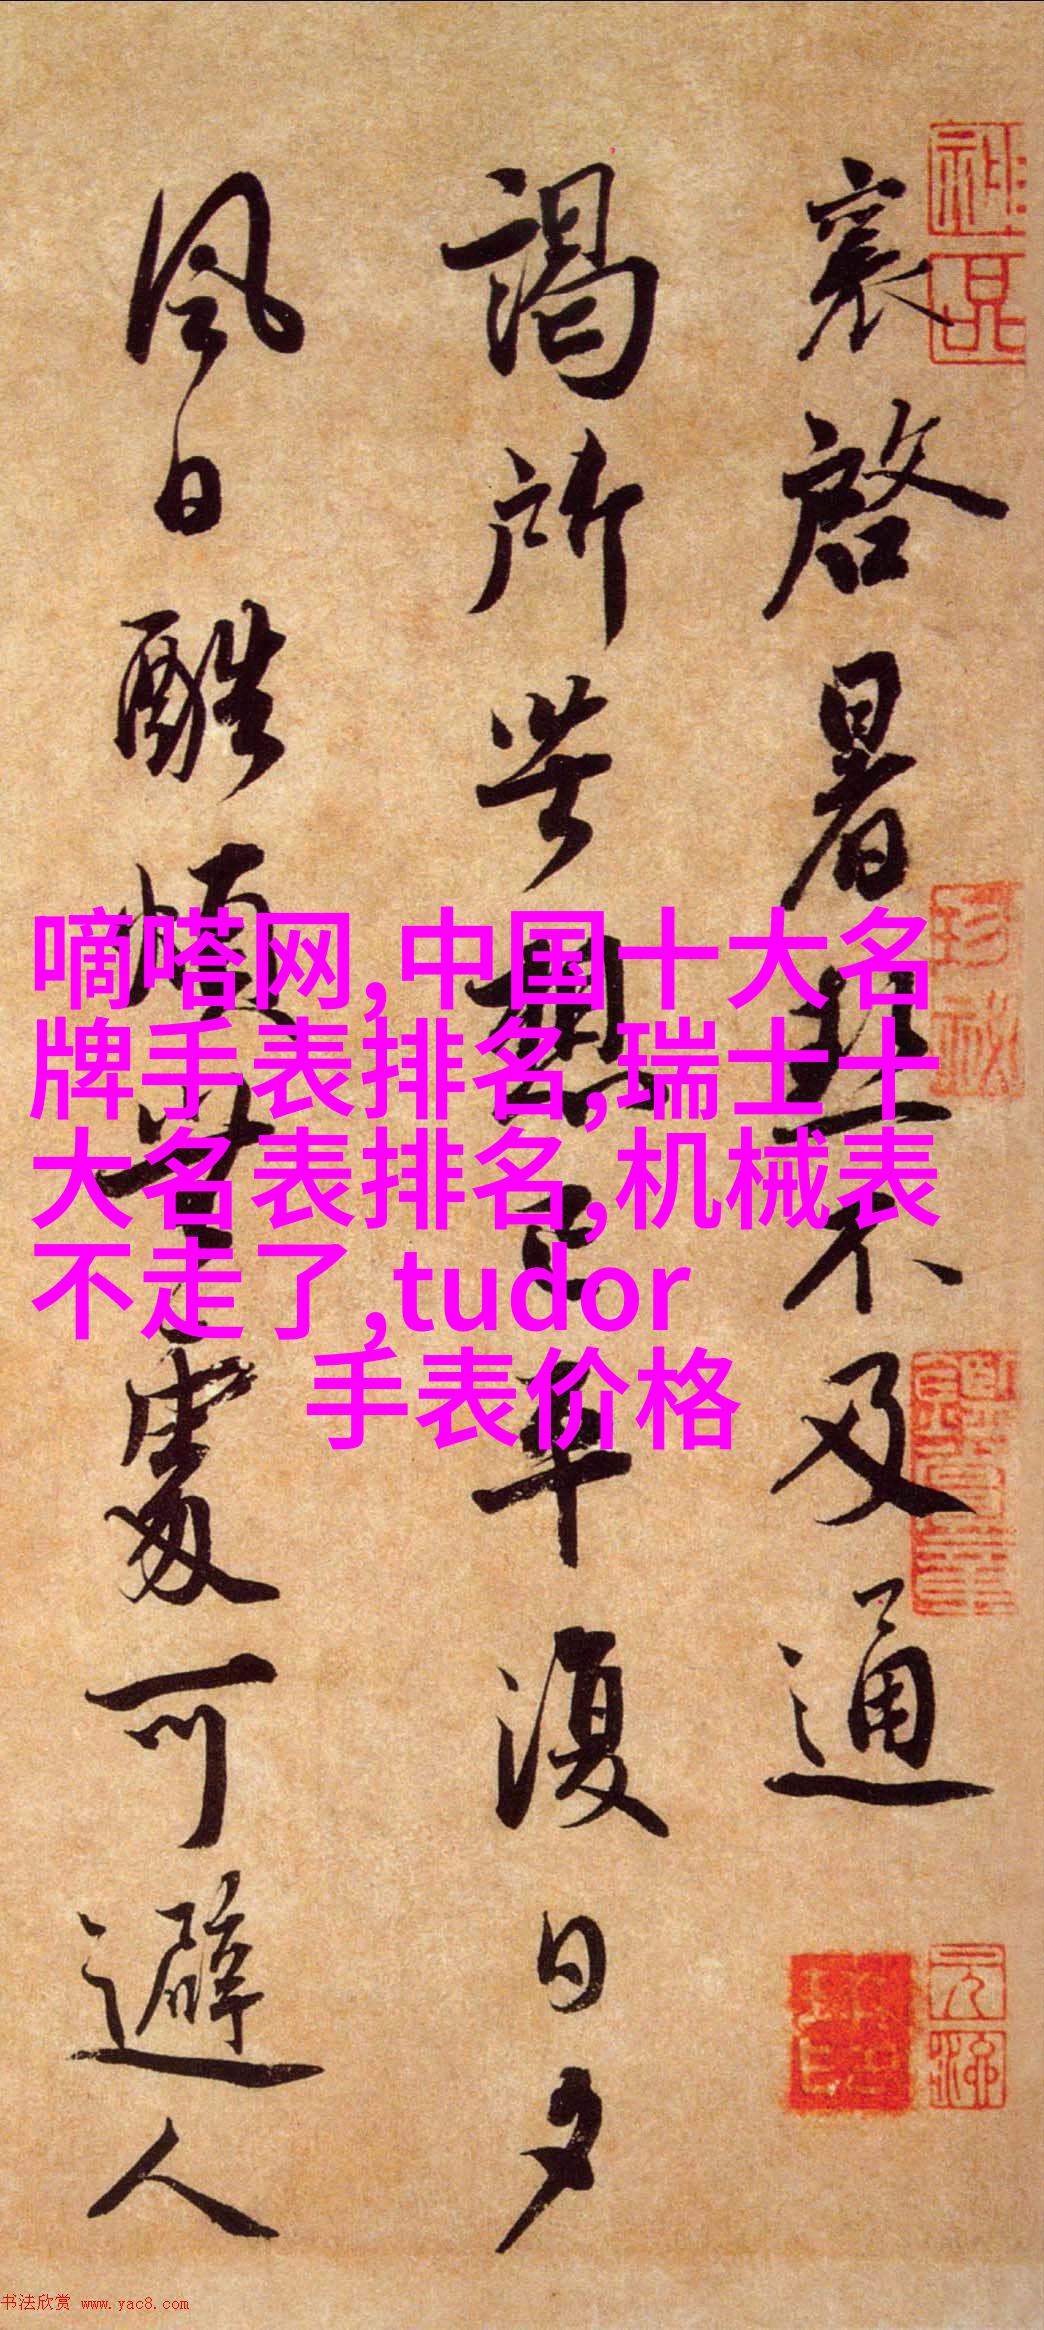 襄啓暑熱不及通
謁所苦想已平復日夕
風日酷煩無處可避人
嘀嗒网,中国十大名
牌手表排名,瑞士十
大名表排名,机械表
不走了,tudor
手表价格
书法欣赏 www.yac8.com